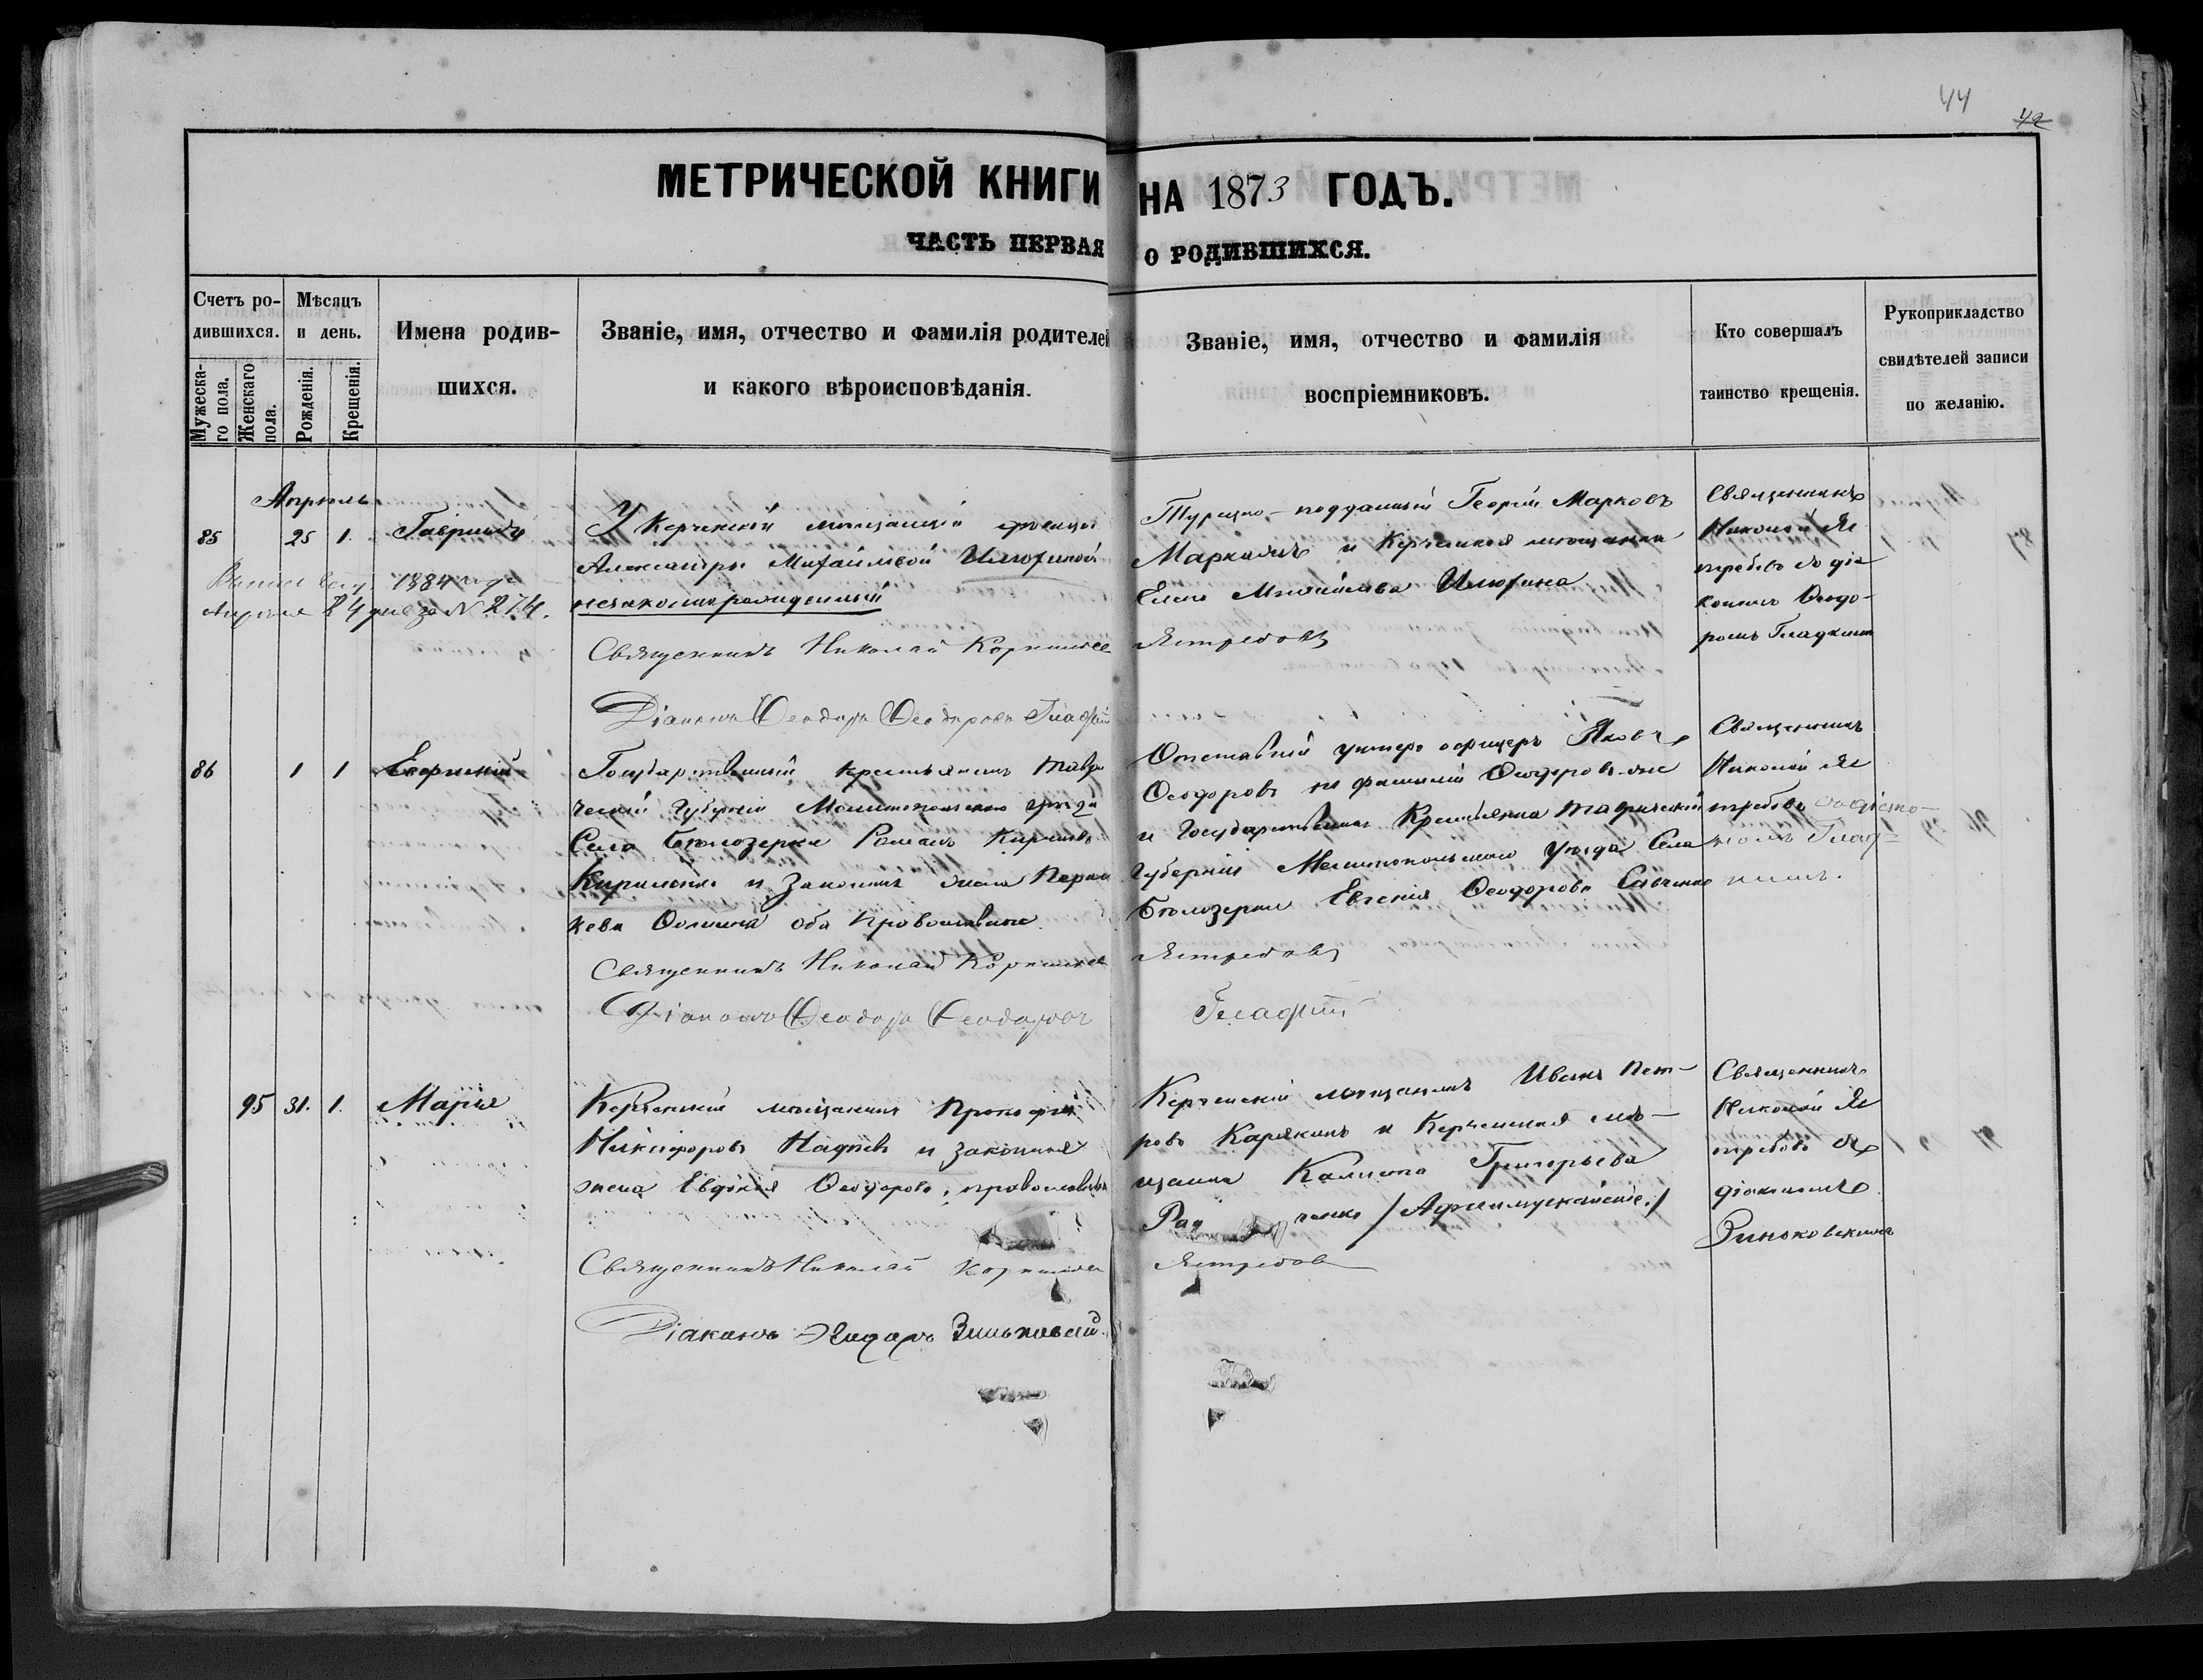 44
42
МЕТРИЧЕСКОЙ КНИГИ НА 1873 ГОДЪ.
ЧАСТЬ ПЕРВАЯ О РОДИВШИХСЯ.
Счетъ родившихся.
Мужескаго пола.
Женскаго пола.
Мѣсяцъ и день.
Рожденія.
Крещенія.
Имена родившихся.
Званіе, имя, отчество и фамилія родителей
и какого вѣроисповѣданія.
Званіе, имя, отчество и фамилія
воспріемниковъ.
Кто совершалъ
таинство крещенія.
Рукоприкладство
свидѣтелей записи
по желанію.
Апрѣль
85 25 1. Гавріилъ
1884 года
Апреля 24 дня за № 274.
У Керченской мѣщанской
Александры Михайловой Илюхиной
незаконнорожденный
Священникъ Николай
Діаконъ Ѳеодоръ Ѳеодоровъ
Турецко-подданный Георгій Марковъ
и Керченская мѣщанка
Елена Михайлова Илюхина
Ястребовъ
Священникъ
Николай Яс
требовъ съ діа
кономъ Ѳеодо-
ромъ Гладкимъ
86 1 1 Евфимій
Государственный крестьянинъ Таври
ческой Губерніи Мелитопольскаго уѣзда
Села Бѣлозерки Романъ
и законная жена Парас
кева Ѳомина оба православные
Священникъ Николай
Діаконъ Ѳеодоръ Ѳеодоровъ
Отставной унтеръ офицеръ Яковъ
Ѳеодоровъ по фамиліи Ѳеодоровъ же
и Государственная Крестьянка Таврической
Губерніи Мелитопольскаго уѣзда Села
Бѣлозерки Евгенія Ѳеодорова Савченко
Ястребовъ
Гладкій
Священникъ
Николай Яс
требовъ съ діако-
номъ Глад-
кимъ.
95 31. 1. Марія
Керченскій мѣщанинъ Прокофій
Никифоровъ и законная
жена Евдокія Ѳеодорова, православные
Священникъ Николай
Діаконъ Зиньковскій.
Керченскій мѣщанинъ Иванъ Пет-
ровъ Карякинъ и Керченская мѣ-
щанка Григорьева
Ястребовъ
Священникъ
Николай Яс
требовъ съ
діакономъ
Зиньковскимъ